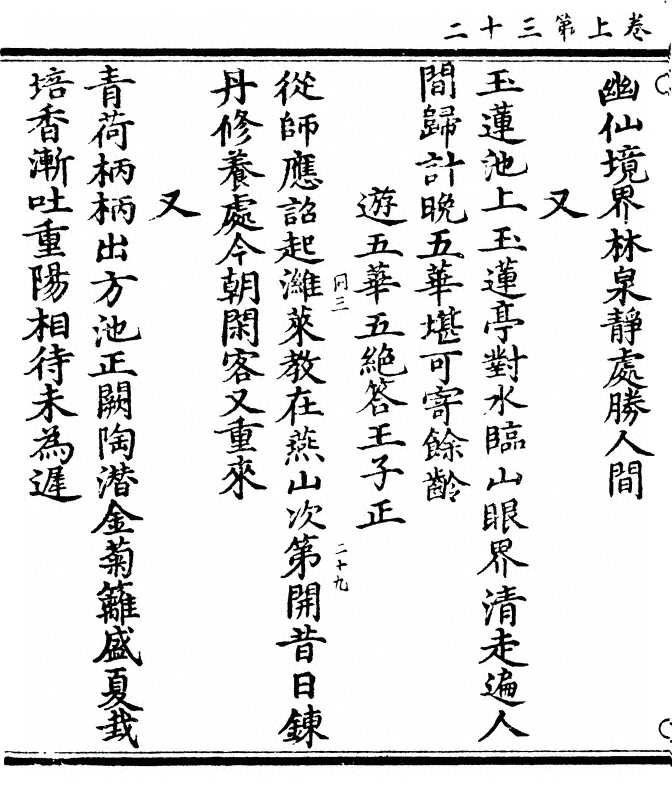 卷上第三十二
幽仙境界林泉靜處勝人間
又
玉蓮池上玉蓮亭對水臨山眼界清走遍人
間歸計晚五華堪可寄餘齡
遊五華五絶答王子正
同三
二十九
從師應詔起濰萊教在燕山次第開昔日鍊
丹修養處今朝閑客又重來
又
青荷柄柄出方池正闕陶潜金菊籬盛夏栽
培香漸吐重陽相待未為遲